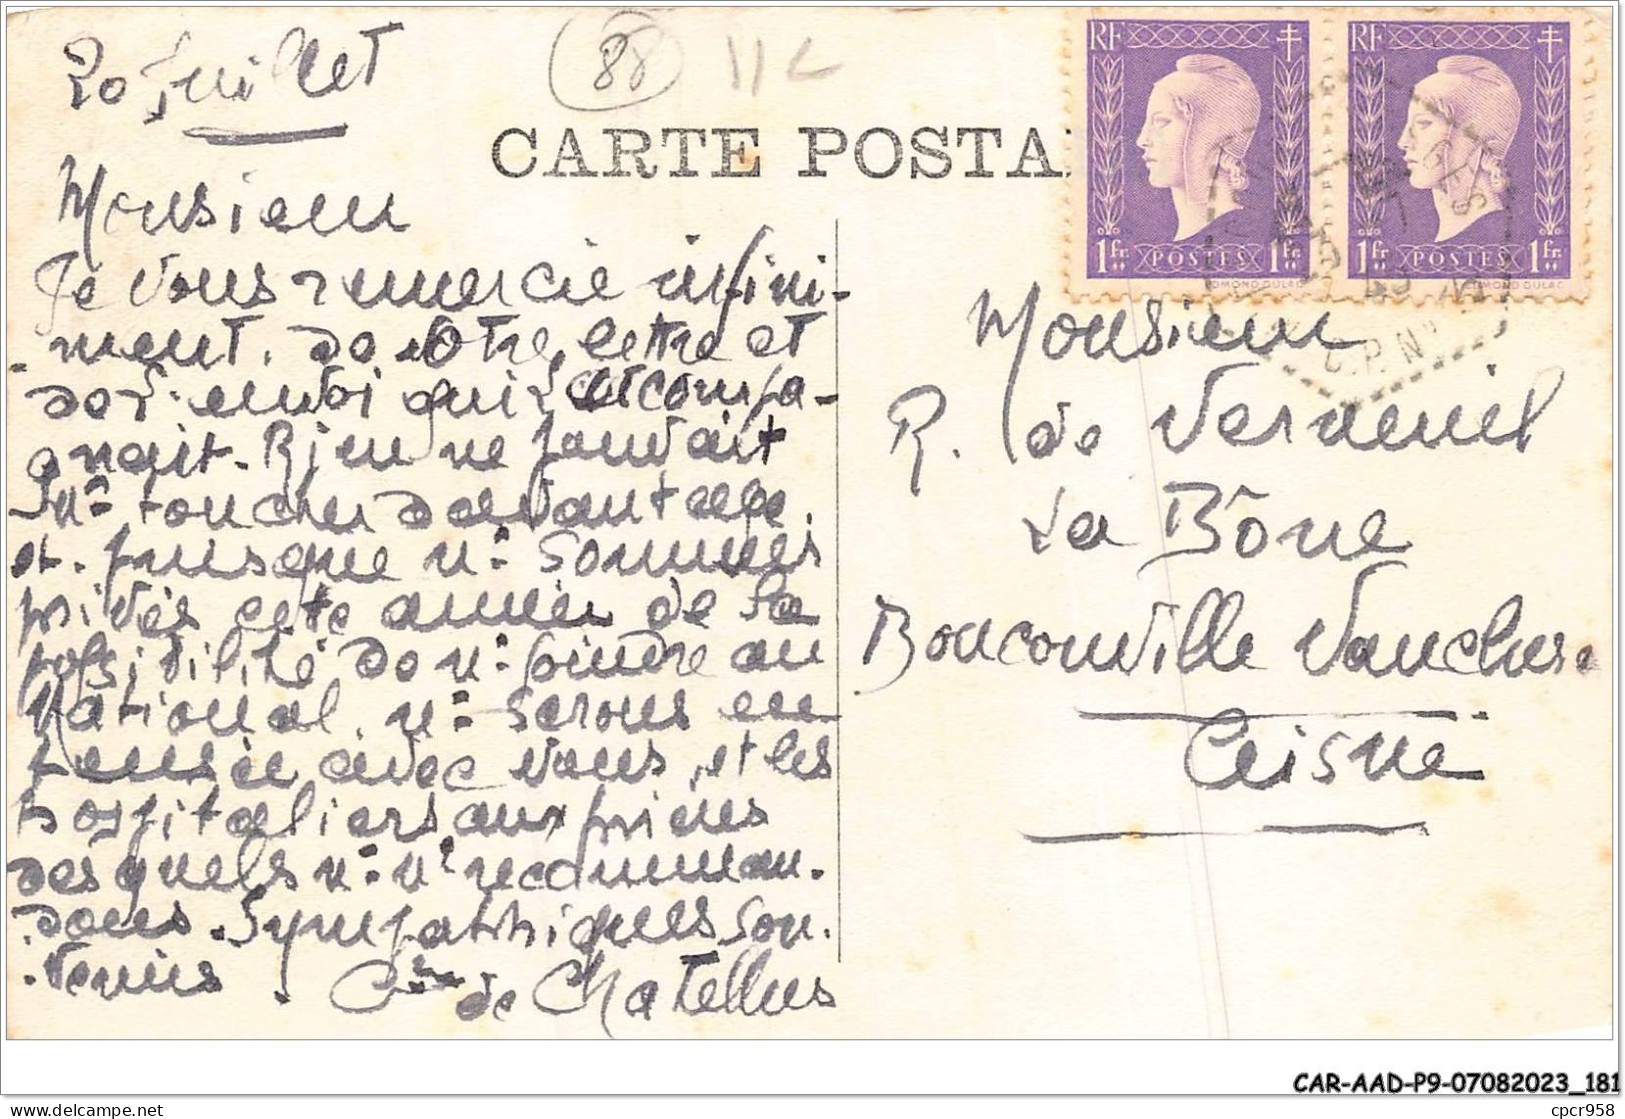 20 Juillet
88
CARTE POSTA
RF
1 fr
POSTES
1 fr
EDMOND DULAC
RF
1 fr
POSTES
1 fr
EDMOND DULAC
GES
C.P. N°
Monsieur
Je vous remercie infini-
-ment. de votre lettre et
de l'envoi qui l'accompa-
gnait. Rien ne pouvait
n: toucher davantage
et. puisque n: sommes
privés cette année de la
possibilité de n: joindre au
National n: serons en
pensée avec vous, et les
hospitaliers aux prières
desquels n: n: recomman-
dons. Sympathiques sou-
venirs. Ctesse de Chatellus
Monsieur
R. de Verneuil
La Bôve
Bouconville Vauclerc
Aisne
CAR-AAD-P9-07082023_181
delcampe.net
cpcr958